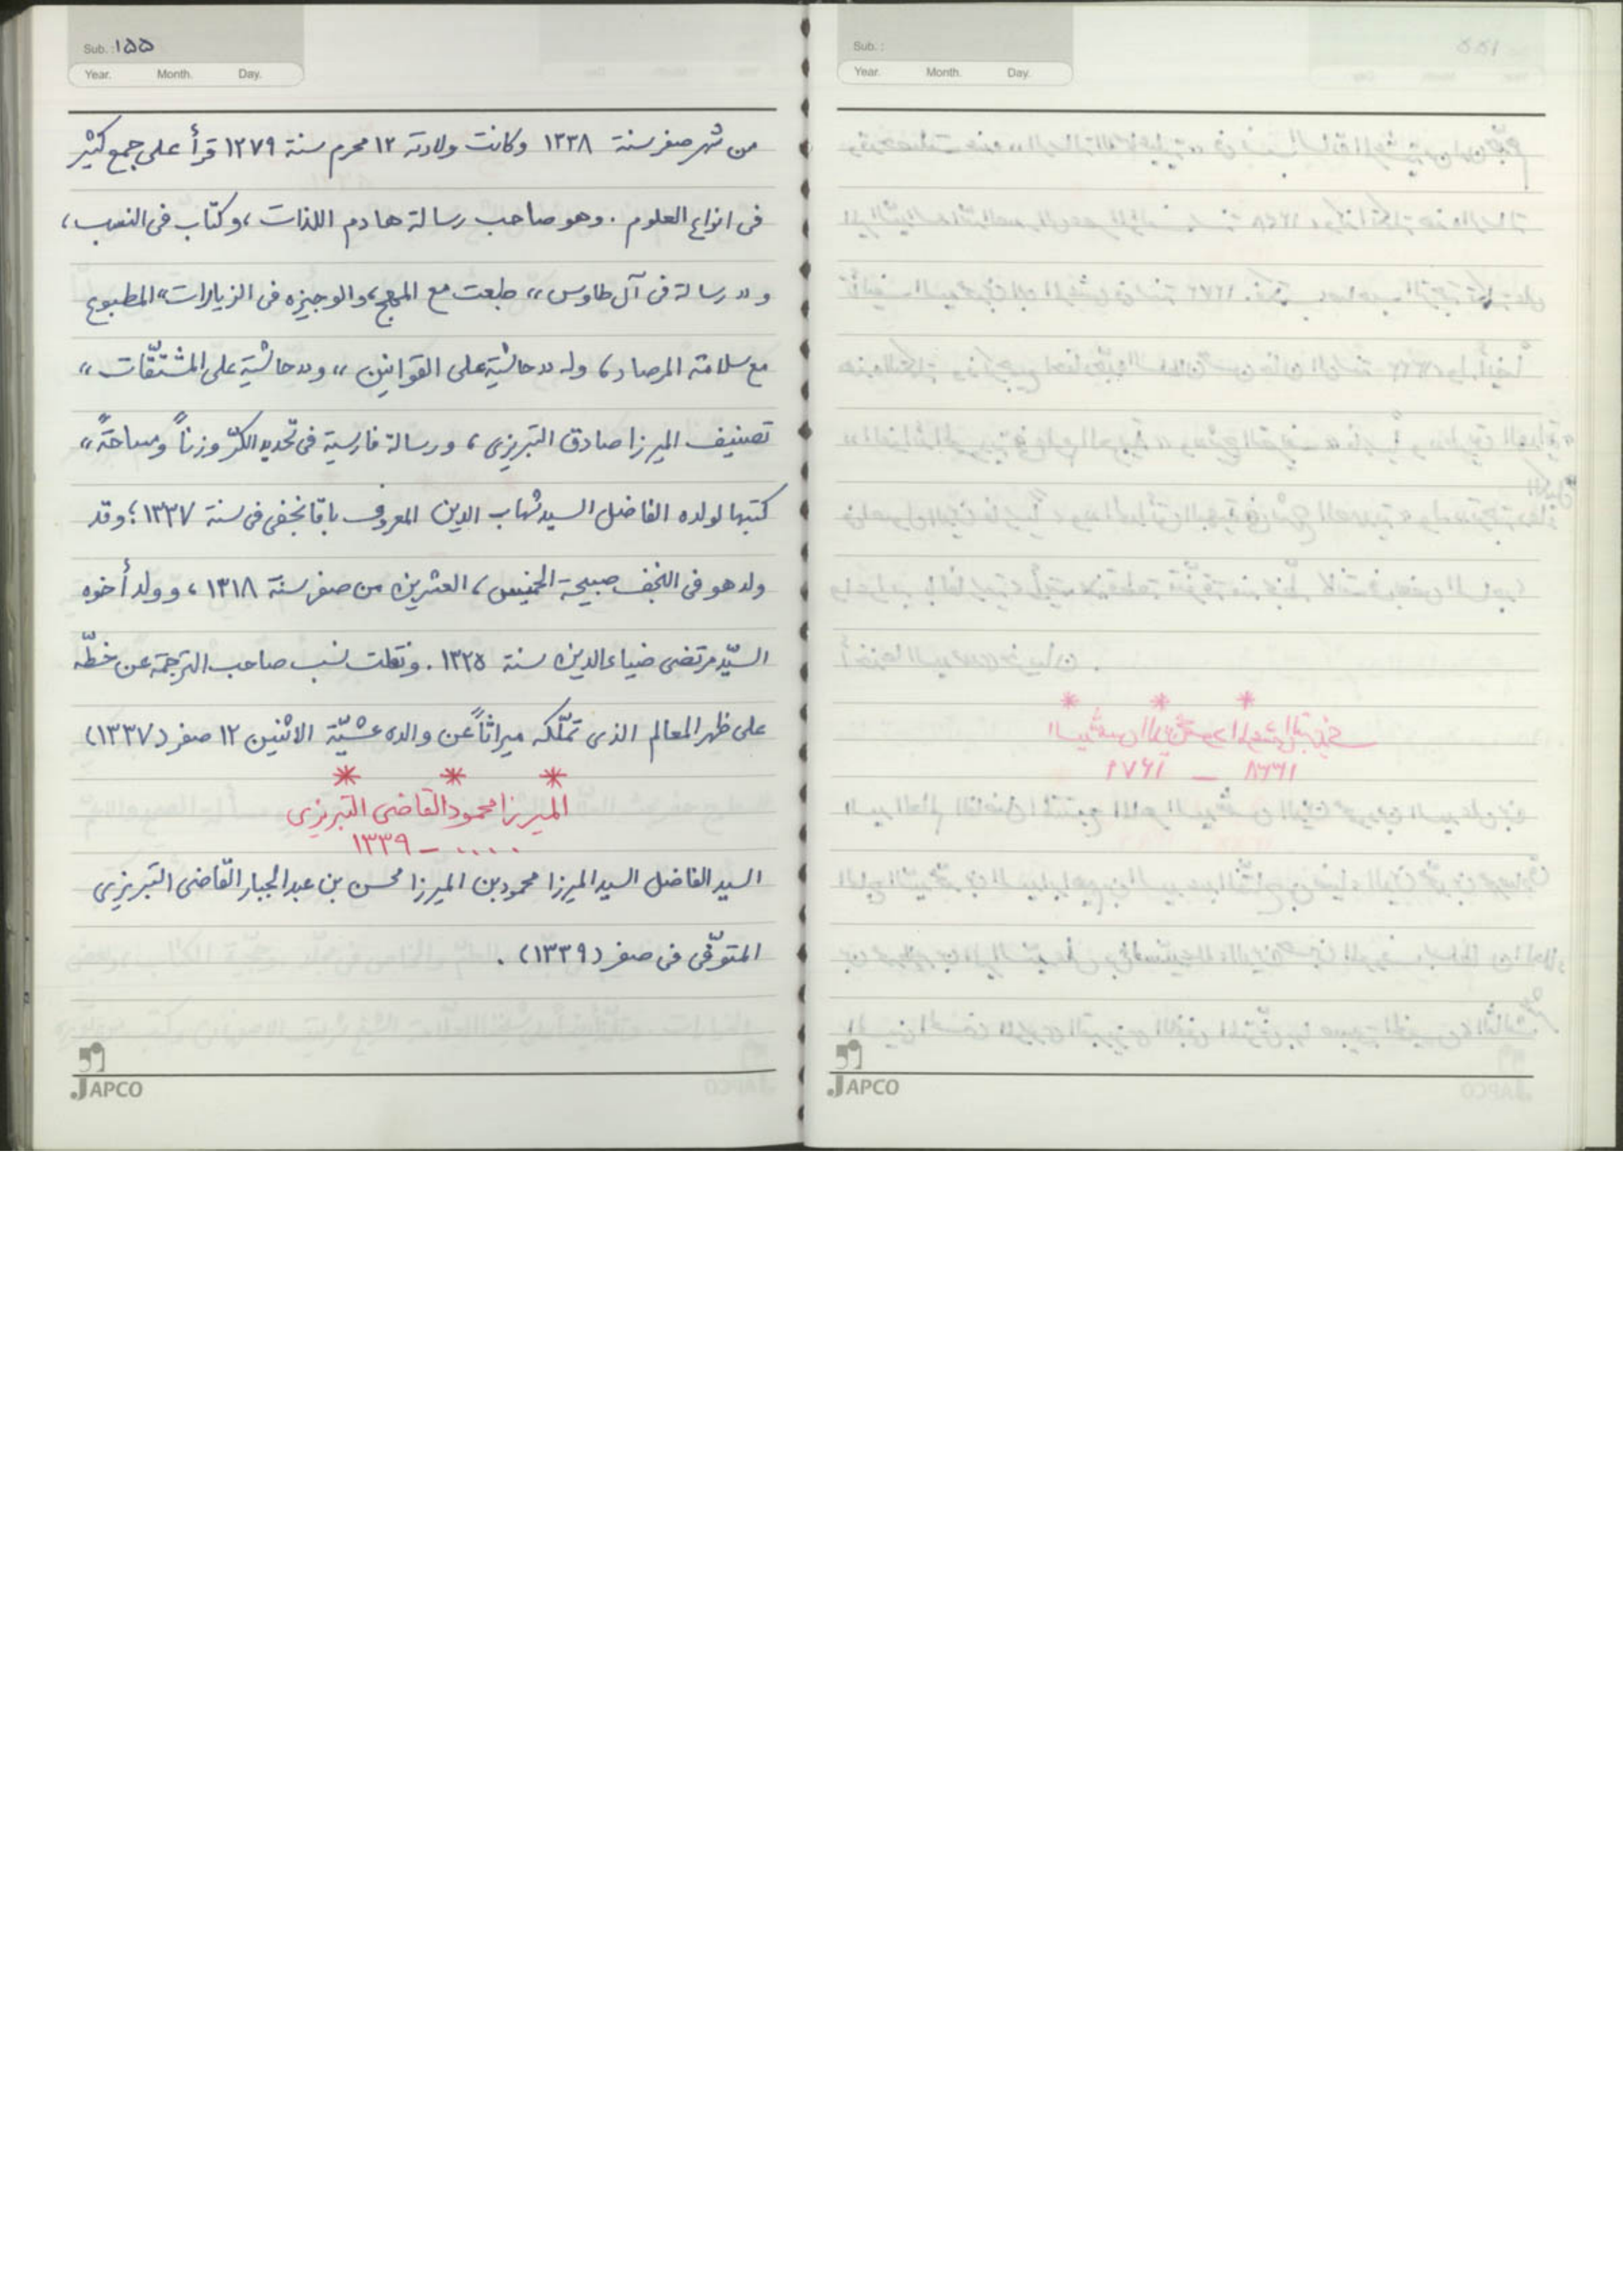 Sub.: ۱۵۵
Year. Month. Day.
من شهر صفر سنة ۱۳۳۸ وكانت ولادته ۱۲ محرم سنة ۱۲۷۹ قرأ على جمع كثير
فى انواع العلوم . وهو صاحب رسالة هادم اللذات ، وكتاب فى النسب ،
و «رسالة فى آل طاوس» طبعت مع المهج، والوجيزه فى الزيارات» المطبوع
مع سلامة المرصاد، وله «حاشية على القوانين» و «حاشية على المشتقّات»
تصنيف الميرزا صادق التبريزى ، ورسالة فارسية فى تحديد الكرّ وزناً ومساحةً»
كتبها لولده الفاضل السيد شهاب الدين المعروف بآقا نجفى فى سنة ۱۳۳۷ ؛ وقد
ولد هو فى النجف صبيحة الخميس ، العشرين من صفر سنة ۱۳۱۸ ، وولد أخوه
السيّد مرتضى ضياءالدين سنة ۱۳۲۵ . ونقلت نسب صاحب الترجمة عن خطّه
على ظهر المعالم الذى تملّكه ميراثاً عن والده عشيّة الاثنين ۱۲ صفر (۱۳۳۷)
* * *
الميرزا محمود القاضى التبريزى
.... – ۱۳۳۹
السيد الفاضل السيد الميرزا محمود بن الميرزا محسن بن عبدالجبار القاضى التبريزى
المتوفّى فى صفر (۱۳۳۹) .
JAPCO
Sub.:
Year. Month. Day.
JAPCO